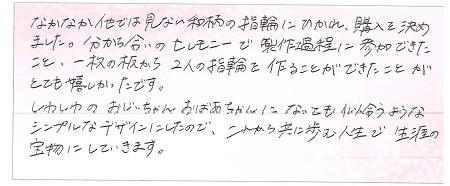 なかなか他では見ない和柄の指輪にひかれ、購入を決め
ました。分かち合いのセレモニーで製作過程に参加できた
こと、一枚の板から2人の指輪を作ることができたことが
とても嬉しかったです。
しわしわのおじいちゃんおばあちゃんになっても似合うような
シンプルなデザインにしたので、これから共に歩む人生で生涯の
宝物にしていきます。